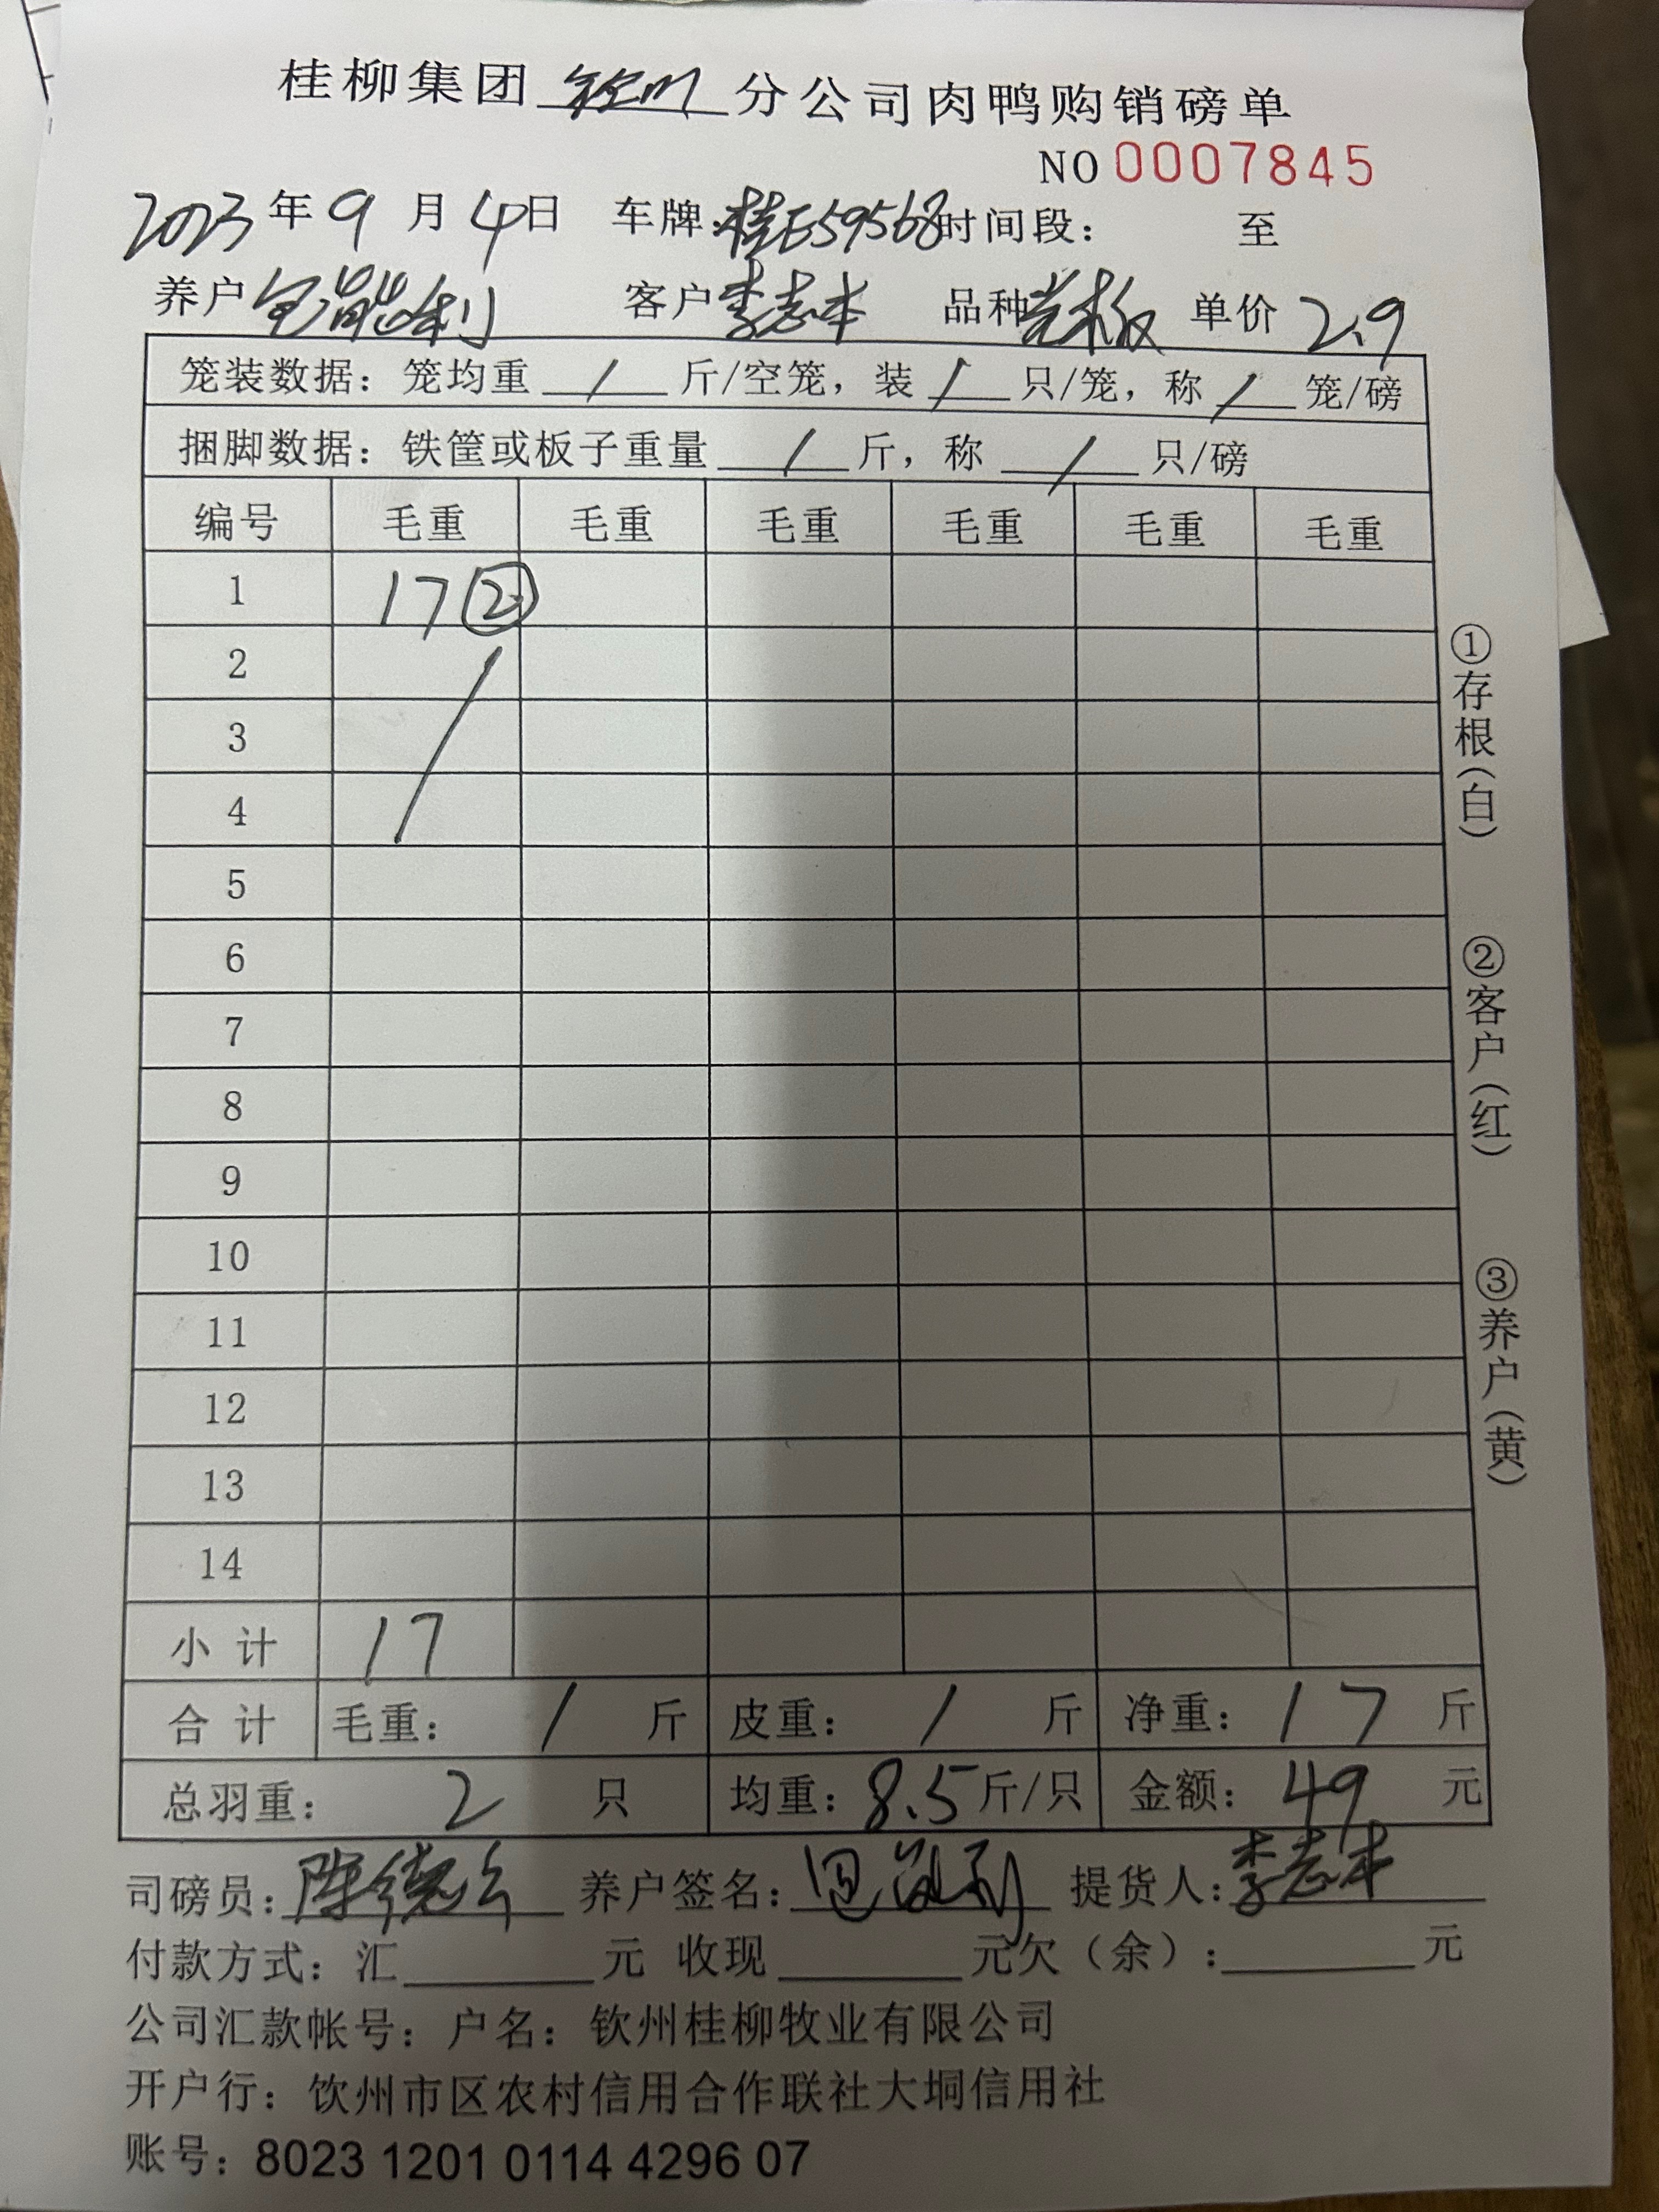 桂柳集团 分公司肉鸭购销磅单
NO 0007845
2023年9月4日 车牌:桂E59568 时间段: 至
养户 客户 李志本 品种 单价 2.9
笼装数据: 笼均重 / 斤/空笼, 装 / 只/笼, 称 / 笼/磅
捆脚数据: 铁筐或板子重量 / 斤, 称 / 只/磅
编号 毛重 毛重 毛重 毛重 毛重 毛重
1 17 ②
2
3
4
5
6
7
8
9
10
11
12
13
14
小计 17
合计 毛重: / 斤 皮重: / 斤 净重: 17 斤
总羽重: 2 只 均重: 8.5 斤/只 金额: 49 元
司磅员: 养户签名: 提货人: 李志本
付款方式: 汇 元 收现 元欠(余): 元
公司汇款帐号: 户名: 钦州桂柳牧业有限公司
开户行: 饮州市区农村信用合作联社大垌信用社
账号: 8023 1201 0114 4296 07
①存根(白)
②客户(红)
③养户(黄)